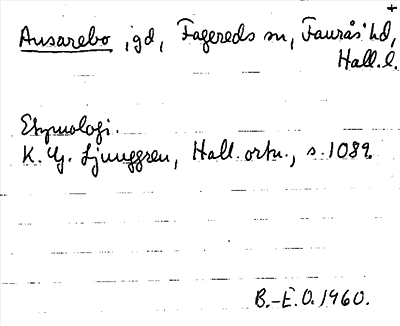 +
Ausarebo, gd, Fagereds sn, Faurås hd,
Hall. l.
Etymologi.
K. G. Ljunggren, Hall. ortn., s. 108 f.
B.-E. O. 1960.